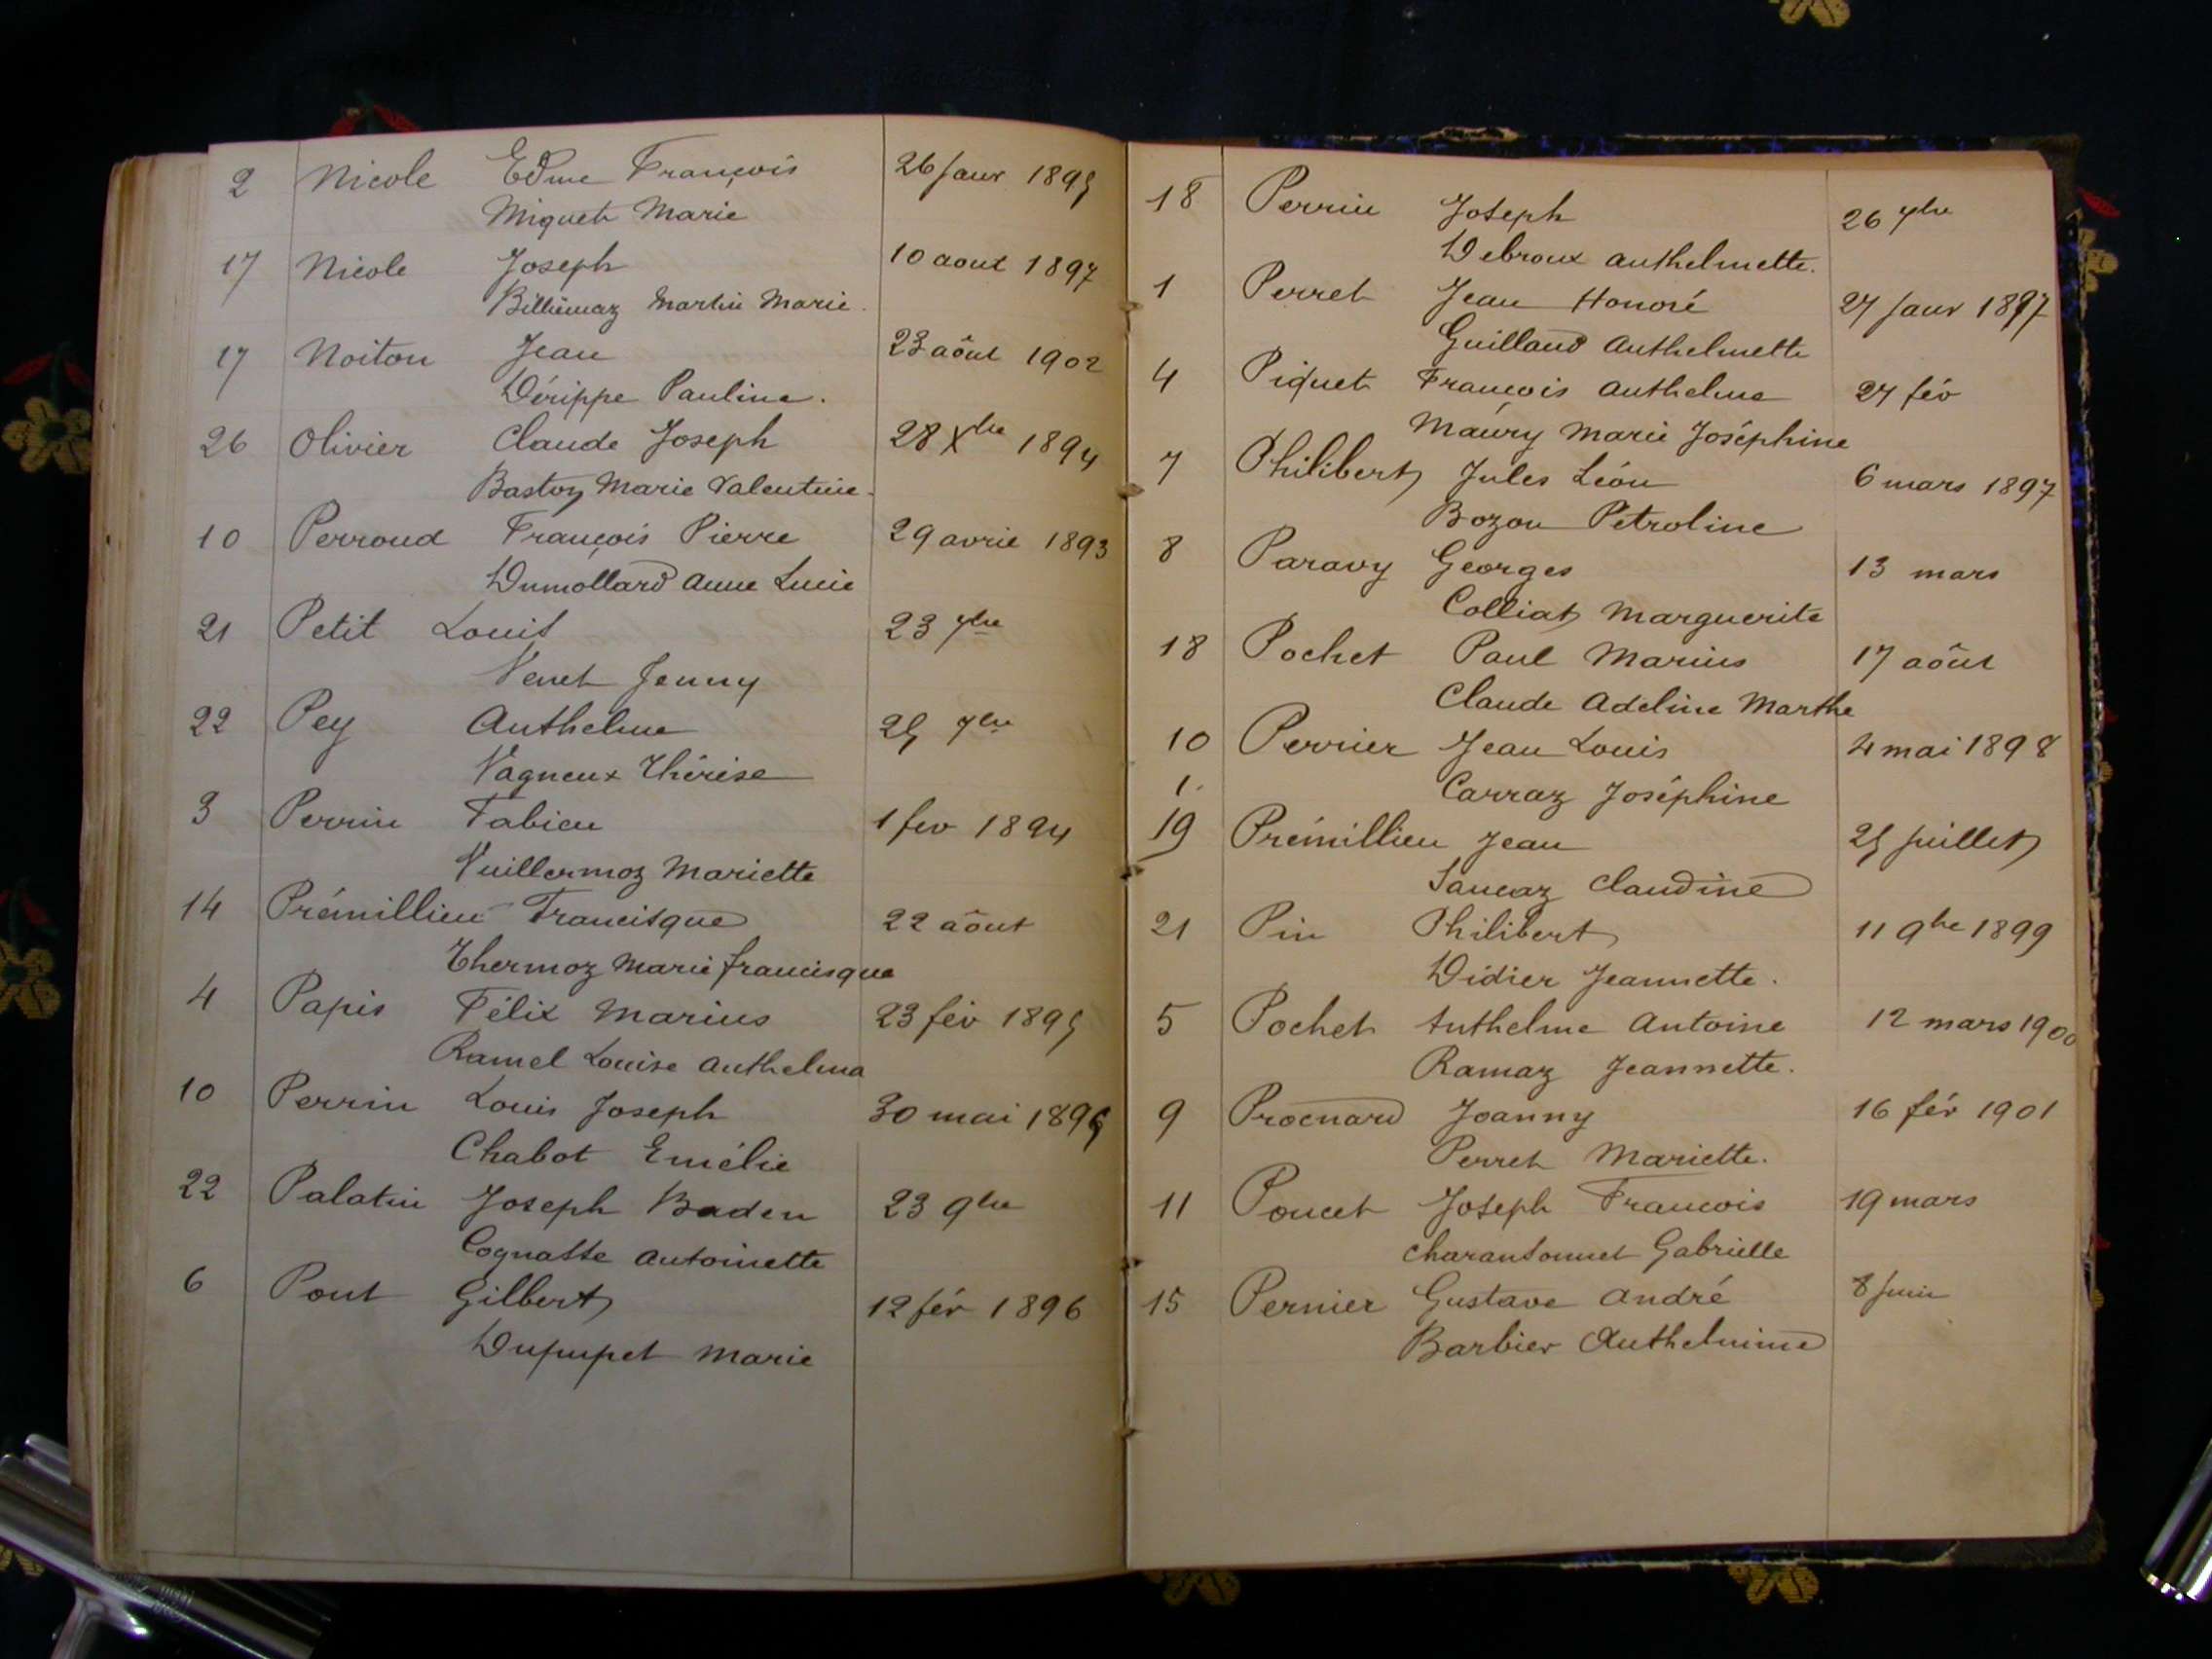 2 Nicole Edme François 26 janv 1895
Miquet Marie
17 Nicole Joseph 10 aout 1897
Billiémaz Martin Marie.
17 Noiton Jean 23 aôut 1902
Dérippe Pauline.
26 Olivier Claude Joseph 28 Xbre 1894
Bastoz Marie Valentine.
10 Perroud François Pierre 29 avril 1893
Dumollard Anne Lucie
21 Petit Louis 23 7bre
Venet Jenny
22 Pey Anthelme 25 7bre
Vagneux Thérèse
3 Perrin Fabien 1 fev 1894
Vuillermoz Mariette
14 Prémillieu Francisque 22 aôut
Thermoz Marie francisque
4 Papis Félix Marius 23 fév 1895
Ramel Louise Anthelma
10 Perrin Louis Joseph 30 mai 1895
Chabot Emélie
22 Palatin Joseph Baden 23 9bre
Cognatte Antoinette
6 Pont Gilbert 12 fév 1896
Dupupet Marie
18 Perrin Joseph 26 7bre
Debroux Anthelmette.
1 Perret Jean Honoré 27 janv 1897
Guilland Anthelmette
4 Piquet François Anthelme 27 fév
Maury Marie Joséphine
7 Philibert Jules Léon 6 mars 1897
Bozon Pétroline
8 Paravy Georges 13 mars
Colliat Marguerite
18 Pochet Paul Marius 17 aôut
Claude Adeline Marthe
10 Perrier Jean Louis 4 mai 1898
1. Carraz Joséphine
19 Prémillieu Jean 25 juillet
Saucaz Claudine
21 Pin Philibert 11 9bre 1899
Didier Jeannette.
5 Pochet Anthelme Antoine 12 mars 1900
Ramaz Jeannette.
9 Procnard Joanny 16 fév 1901
Perret Mariette.
11 Poncet Joseph François 19 mars
Charansonnet Gabrielle
15 Pernier Gustave André 8 juin
Barbier Anthelmine